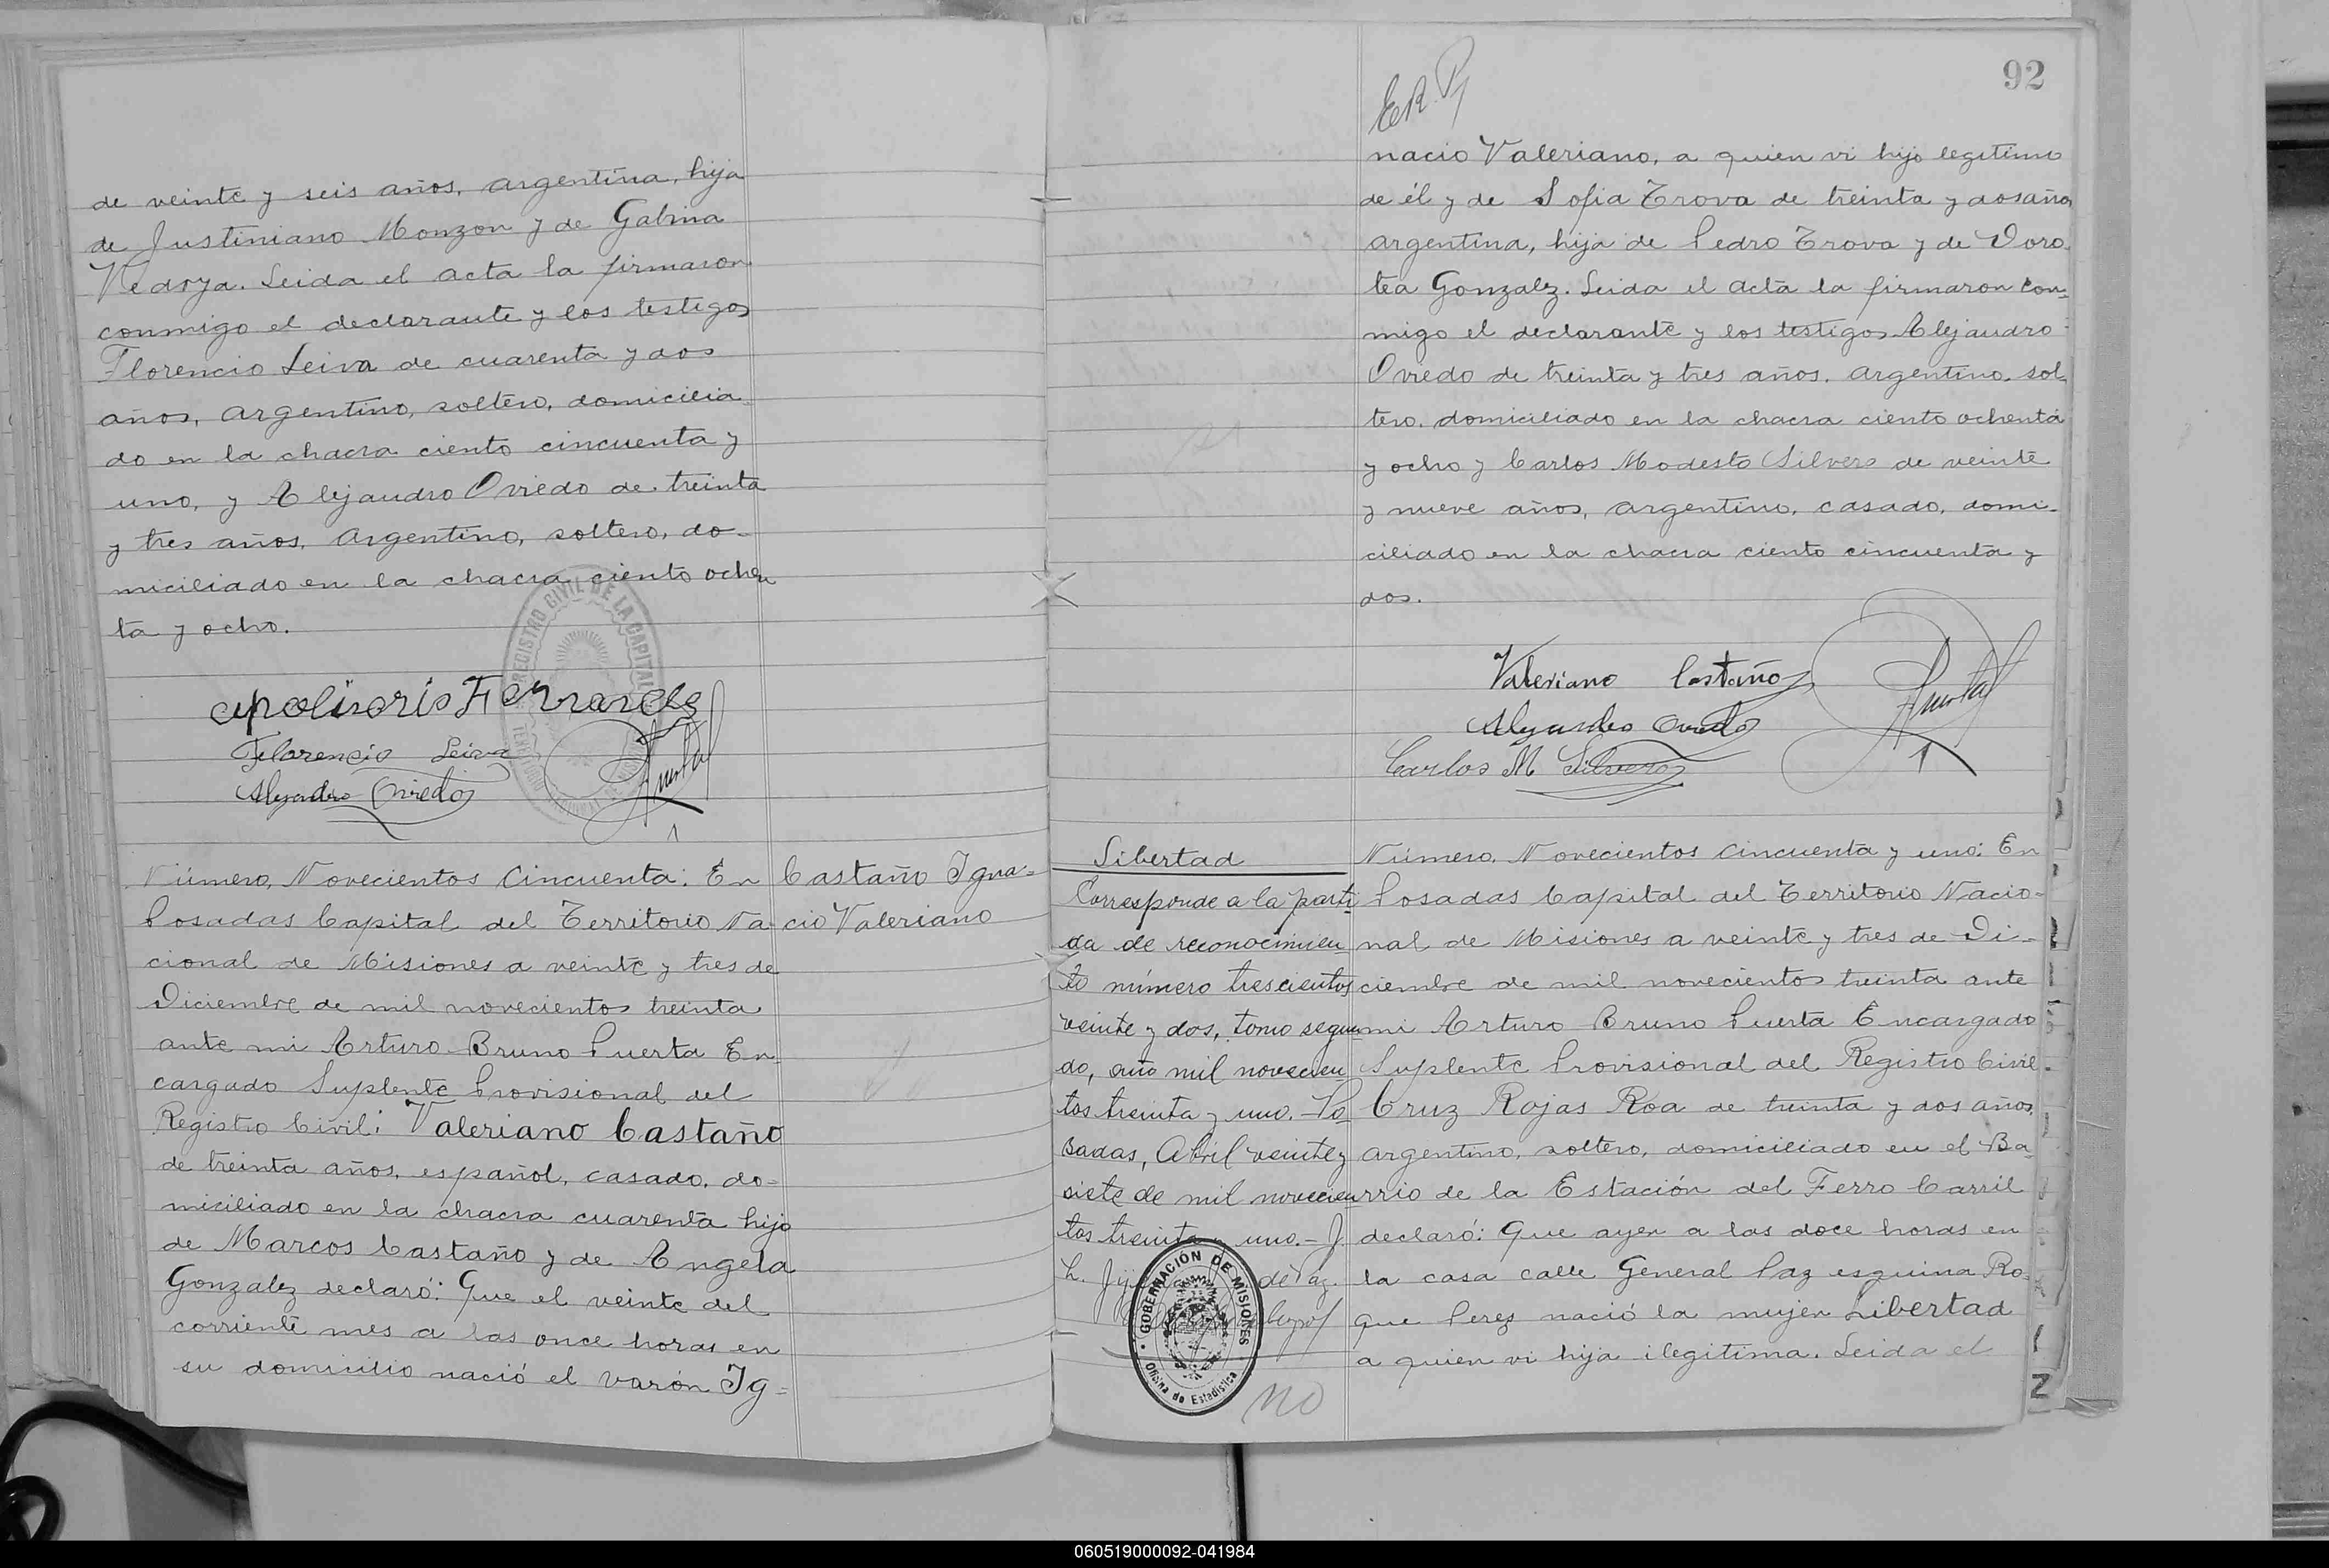 de veinte y seis años, argentina, hija
de Justiniano Monzon y de Gabina
Vedoya. Leida el acta la firmaron
conmigo el declarante y los testigos
Florencio Leiva de cuarenta y dos
años, argentino, soltero, domicilia
do en la chacra ciento cincuenta y
uno, y Alejandro Oviedo de treinta
y tres años, argentino, soltero, do-
miciliado en la chacra ciento ochen
ta y ocho.
REGISTRO CIVIL DE LA CAPITAL
Apolinario Fernandez
Florencio Leiva
Alejandro Oviedo
Número, Novecientos Cincuenta: En
Posadas Capital del Territorio Na-
cional de Misiones a veinte y tres de
Diciembre de mil novecientos treinta
ante mi Arturo Bruno Puerta En-
cargado Suplente Provisional del
Registro Civil: Valeriano Castaño
de treinta años, español, casado, do-
miciliado en la chacra cuarenta hijo
de Marcos Castaño y de Angela
Gonzalez declaró: Que el veinte del
corriente mes a las once horas en
su domicilio nació el varón Ig-
Castaño Igna-
cio Valeriano
92
nacio Valeriano, a quien vi hijo legitimo
de él y de Sofia Trova de treinta y dos años
argentina, hija de Pedro Trova y de Doro
tea Gonzalez. Leida el acta la firmaron con-
migo el declarante y los testigos Alejandro
Oviedo de treinta y tres años, argentino, sol
tero, domiciliado en la chacra ciento ochenta
y ocho y Carlos Modesto Silvero de veinte
y nueve años, argentino, casado, domi-
ciliado en la chacra ciento cincuenta y
dos.
Valeriano Castaño
Puerta
Alejandro Oviedo
Carlos M Silvero
Libertad
Corresponde a la parti
da de reconocimien
to número trescientos
veinte y dos, tomo segun
do, año mil novecien
tos treinta y uno. Po
sadas, Abril veinte y
siete de mil novecien
tos treinta y uno.- J.
de Paz.
GOBERNACIÓN DE MISIONES
Oficina de Estadística
no
Número, Novecientos Cincuenta y uno: En
Posadas Capital del Territorio Nacio-
nal de Misiones a veinte y tres de Di-
ciembre de mil novecientos treinta ante
mi Arturo Bruno Puerta Encargado
Suplente Provisional del Registro Civil
Cruz Rojas Roa de treinta y dos años,
argentino, soltero, domiciliado en el Ba
rrio de la Estación del Ferro Carril
declaró: Que ayer a las doce horas en
la casa calle General Paz esquina Ro
que Perez nació la mujer Libertad
a quien vi hija ilegitima. Leida el
060519000092-041984